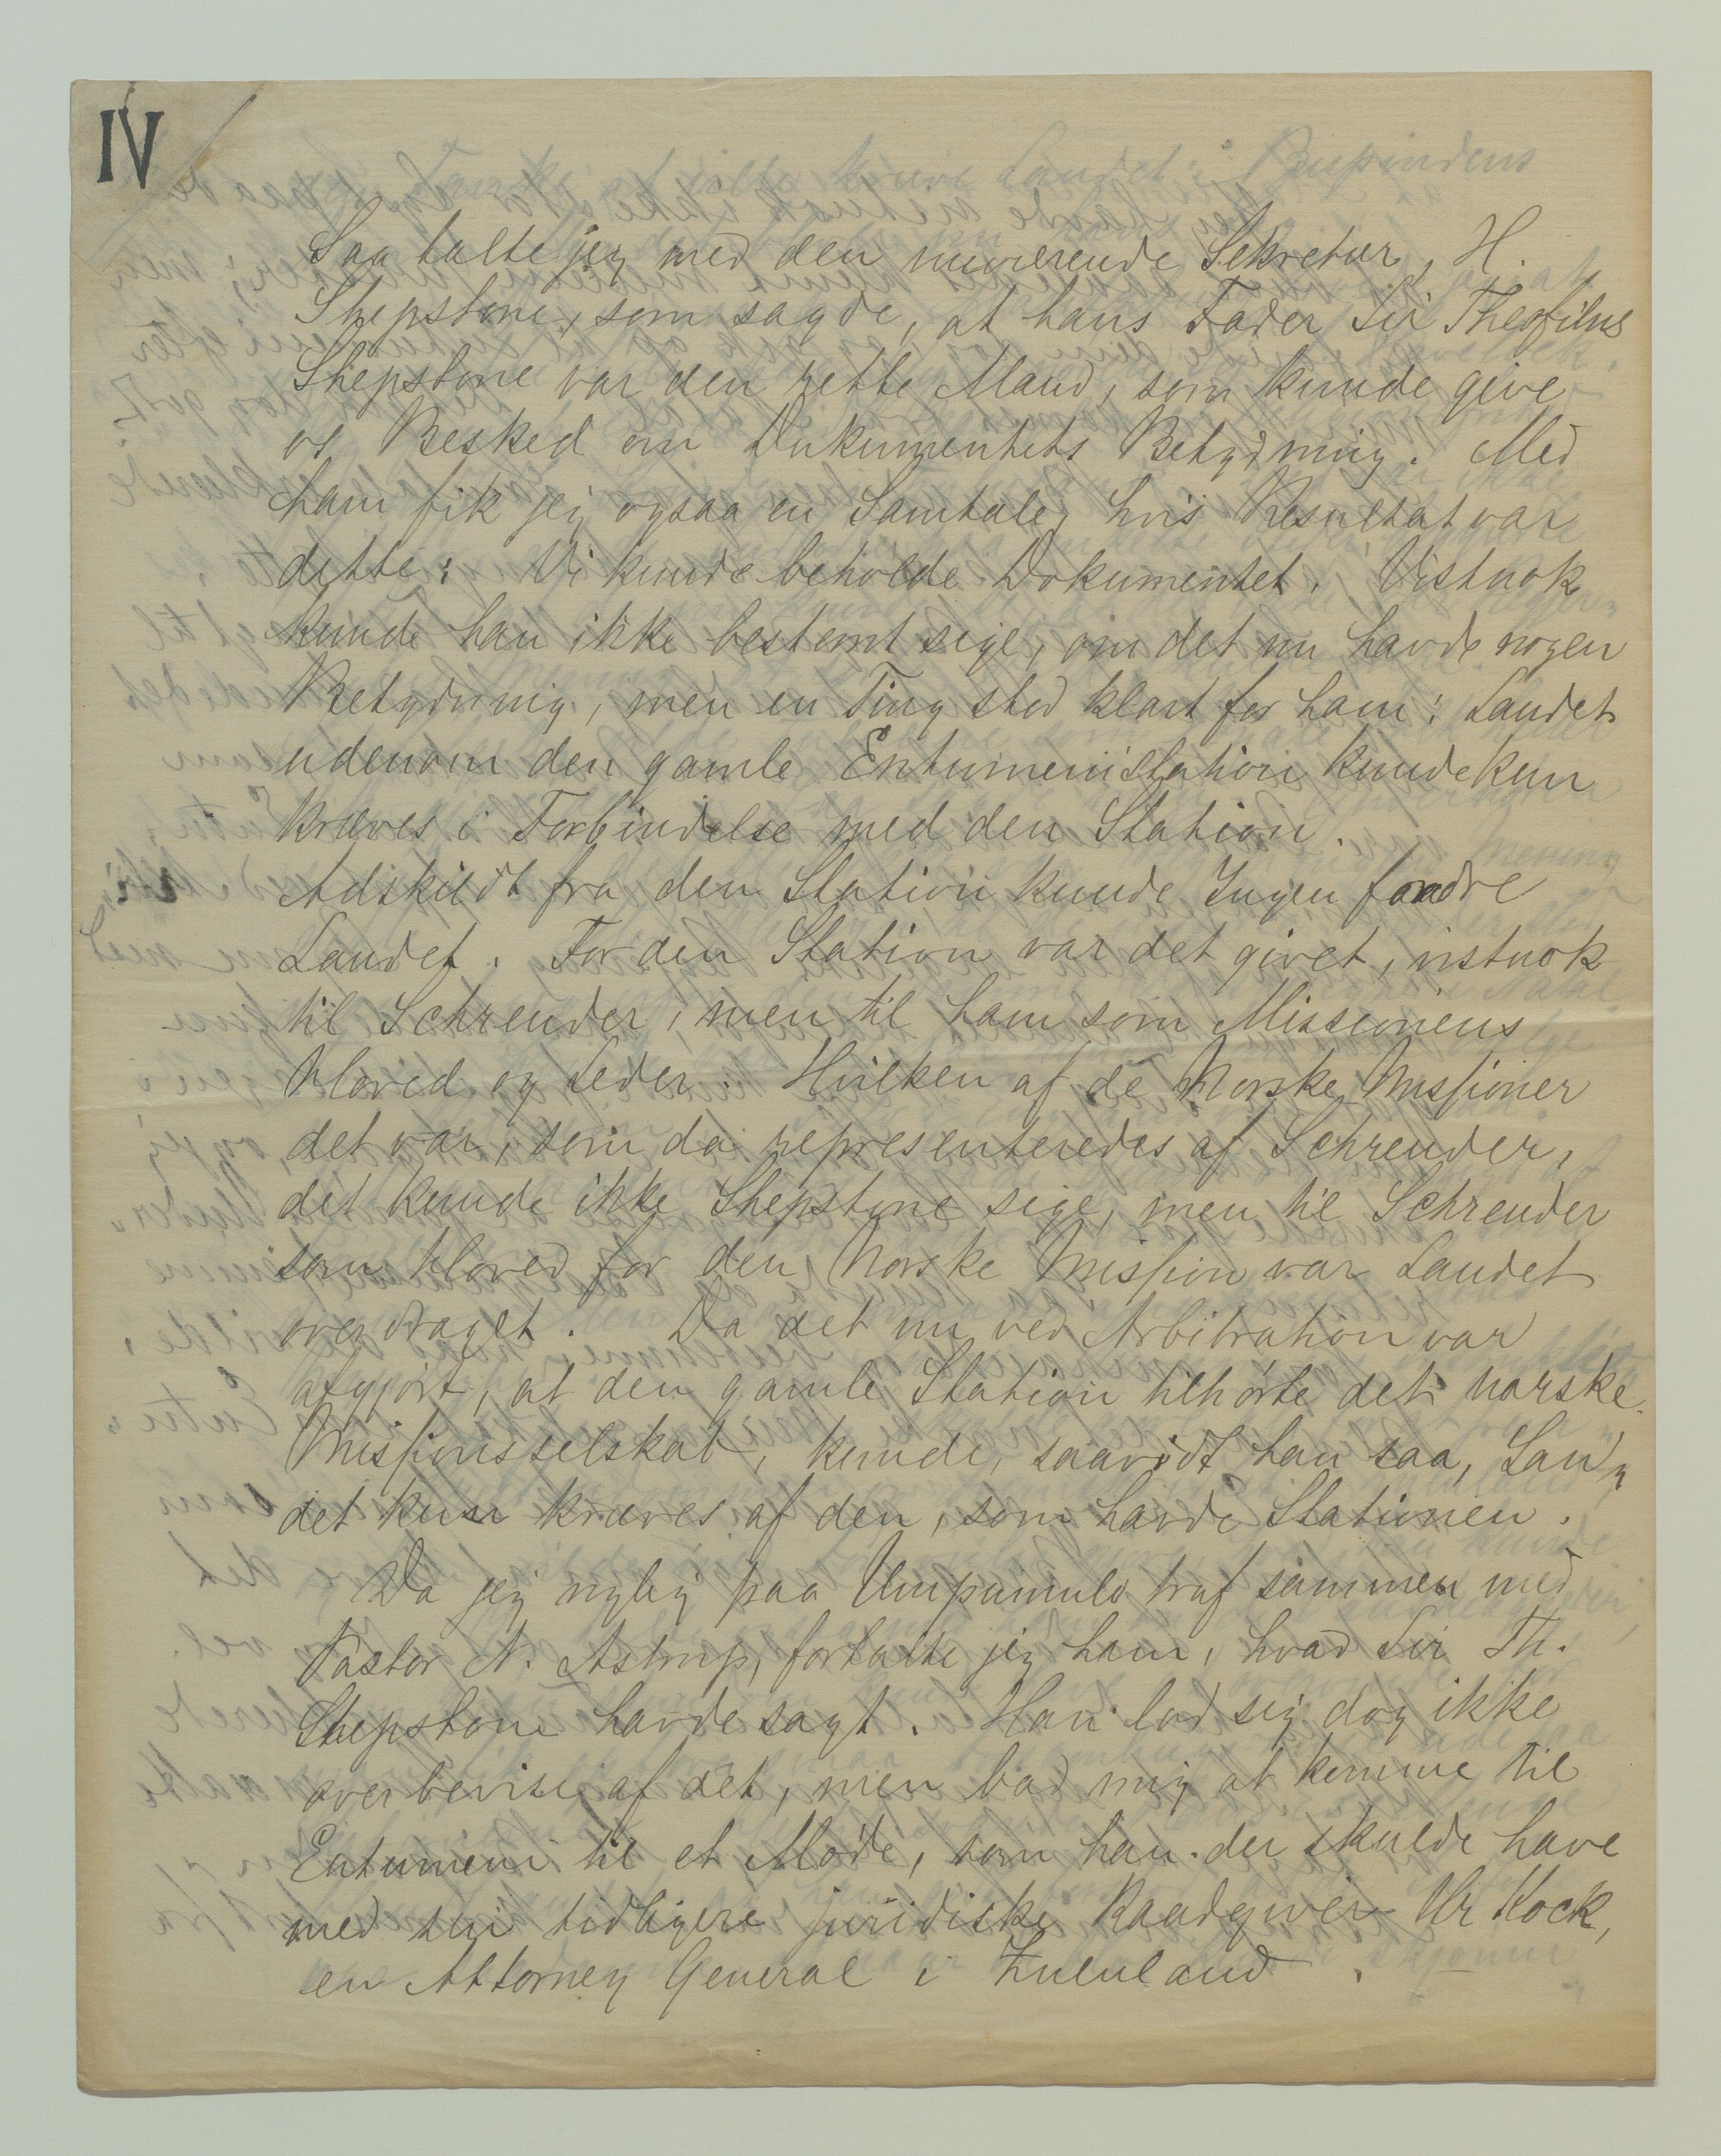 IV
Saa talte jeg med den nuværende Sekretær, H.
Shepstone, som sagde, at hans Fader Sir Theofilus
Shepstone var den rette Mand, som kunde give
os Besked om Dokumentets Betydning. Med
ham fik jeg ogsaa en Samtale, hvis Resultat var
dette: Vi kunde beholde Dokumentet. Vistnok
kunde han ikke bestemt sige, om det nu havde nogen
Betydning, men en Ting stod klart for ham: Landet
udenom den gamle Entumenistation kunde kun
kræves i Forbindelse med den Station.
Adskildt fra den Station kunde Ingen fordre
Landet. For den Station var det givet, vistnok
til Schreuder, men til ham som Missionens
Hoved og Leder. Hvilken af de Norske Missioner
det var, som da representeredes af Schreuder,
det kunde ikke Shepstone sige, men til Schreuder
som Hoved for den Norske Mission var Landet
overdraget. Da det nu ved Arbitration var
afgjort, at den gamle Station tilhørte det norske
Missionsselskab, kunde, saavidt han saa, Lan-
det kun kræves af den, som havde Stationen.
Da jeg nylig paa Umpumulo traf sammen med
Pastor N. Astrup, fortalte jeg ham, hvad Sir Th.
Shepstone havde sagt. Han lod sig dog ikke
overbevise af det, men bad mig at komme til
Entumeni til et Møde, som han der skulde have
med sin tidligere juridiske Raadgiver Hr Kock,
en Attorney General i Zululand.